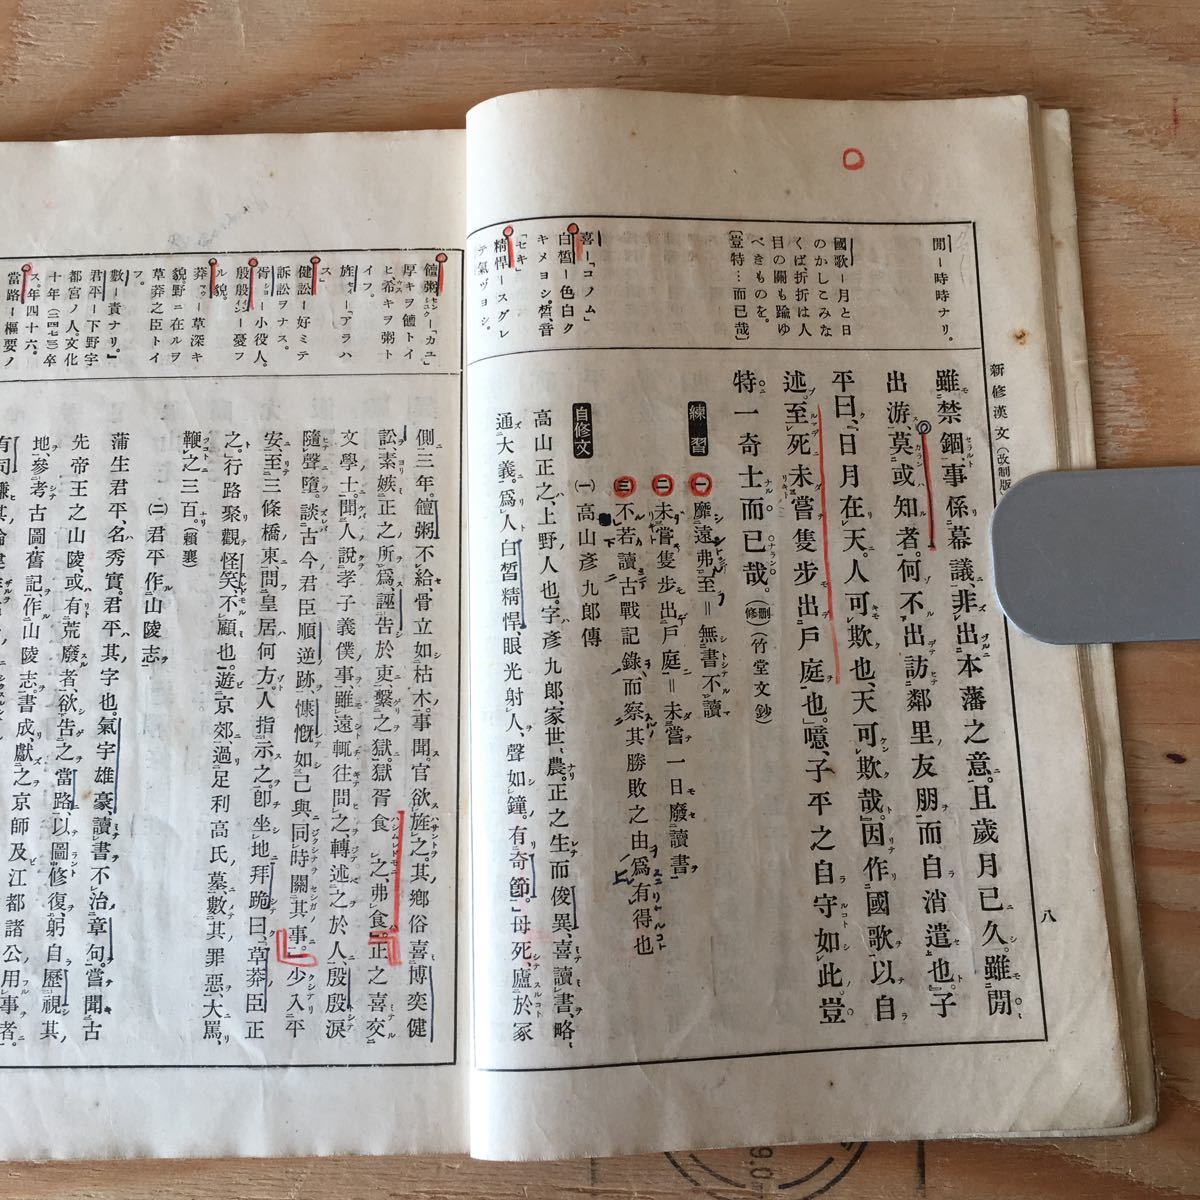 新修漢文(改制版)
八
閒ー時時ナリ。
國歌ー月と日
のかしこみな
くば、折折は人
目の關も踰ゆ
べきものを。
〔豈特…而已哉〕
喜ー「コノム」
白皙ー色白ク
キメヨシ。皙、音
「セキ」
精悍ースグレ
テ氣ヅヨシ。
雖禁錮、事係幕議、非出本藩之意。且歲月已久。雖閒
出游、莫或知者。何不出訪鄰里友朋、而自消遣也。』子
平曰、『日月在天。人可欺也、天可欺哉。』因作國歌、以自
述。至死未嘗隻步出戶庭也。』噫、子平之自守如此。豈
特一奇士而已哉。(刪修)(竹堂文鈔)
練習
一 靡遠弗至＝無書不讀
二 未嘗隻步出戶庭＝未嘗一日廢讀書
三 不若讀古戰記錄、而察其勝敗之由爲有得也
自修文
(一)高山彥九郎傳
高山正之、上野人也。字彥九郎、家世農。正之生而俊異、喜讀書、略
通大義。爲人白皙精悍、眼光射人、聲如鐘。有奇節。』母死、廬於冢
饘粥ー「カユ」
厚キヲ饘トイ
ヒ、希キヲ粥ト
イフ。
旌ー「アラハ
ス」
健訟ー好ミテ
訴訟ヲナス。
胥ー小役人。
殷殷ー憂フ
ル貌。
莽ー草深キ
貌。野ニ在ルヲ
草莽之臣トイ
フ。
數ー責ナリ。』
君平ー下野宇
都宮ノ人。文化
十年(二四七三)卒
ス。年四十六。
當路ー樞要ノ
側三年。饘粥不給、骨立如枯木。事聞。官欲旌之。其鄉俗喜博奕健
訟、素嫉正之所爲、誣告於吏、繫之獄。獄胥食之、弗食。』正之喜交
文學士。聞人說孝子義僕事、雖遠輒往問之、轉述之於人、殷殷淚
隨聲墮。談古今君臣順逆跡、慷慨如己與同時關其事。』少入平
安、至三條橋東、問皇居何方。人指示之。卽坐地拜跪曰、『草莽臣正
之。』行路聚觀怪笑、不顧也。』遊京郊、過足利高氏墓、數其罪惡、大罵、
鞭之三百。(賴襄)
(二)君平作山陵志
蒲生君平、名秀實。君平其字也。氣宇雄豪、讀書不治章句。嘗聞古
先帝王之山陵、或有荒廢者、欲告之當路、以圖修復、躬自歷視其
地、參考古圖舊記、作山陵志。書成獻之京師及江都諸公用事者。